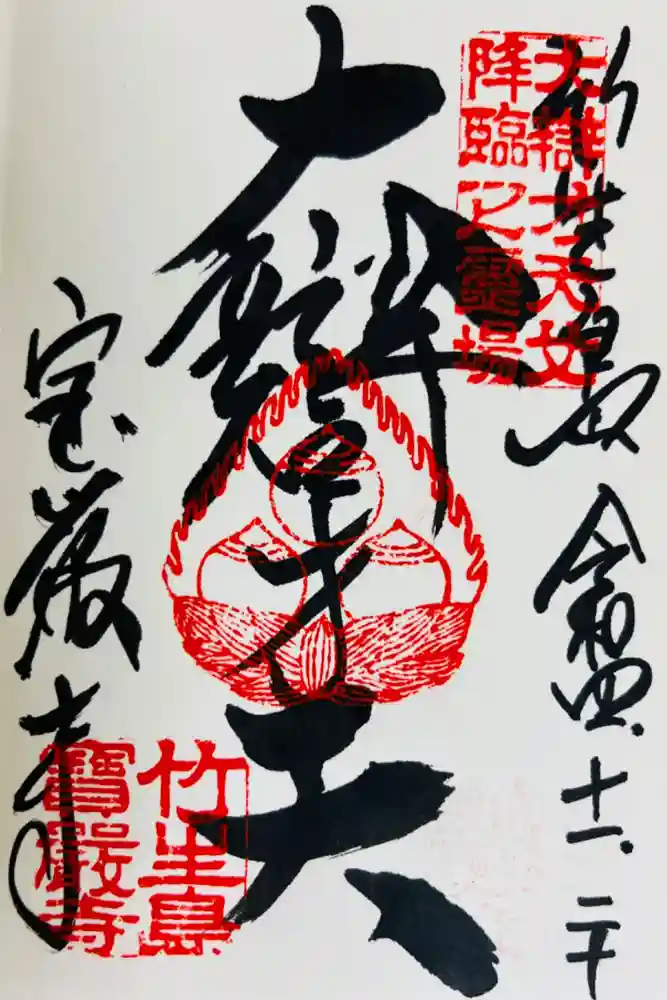 竹生島
令和四.十一.二十
大辯才天女
降臨之靈場
大辯才天
宝厳寺
竹生島
寶嚴寺